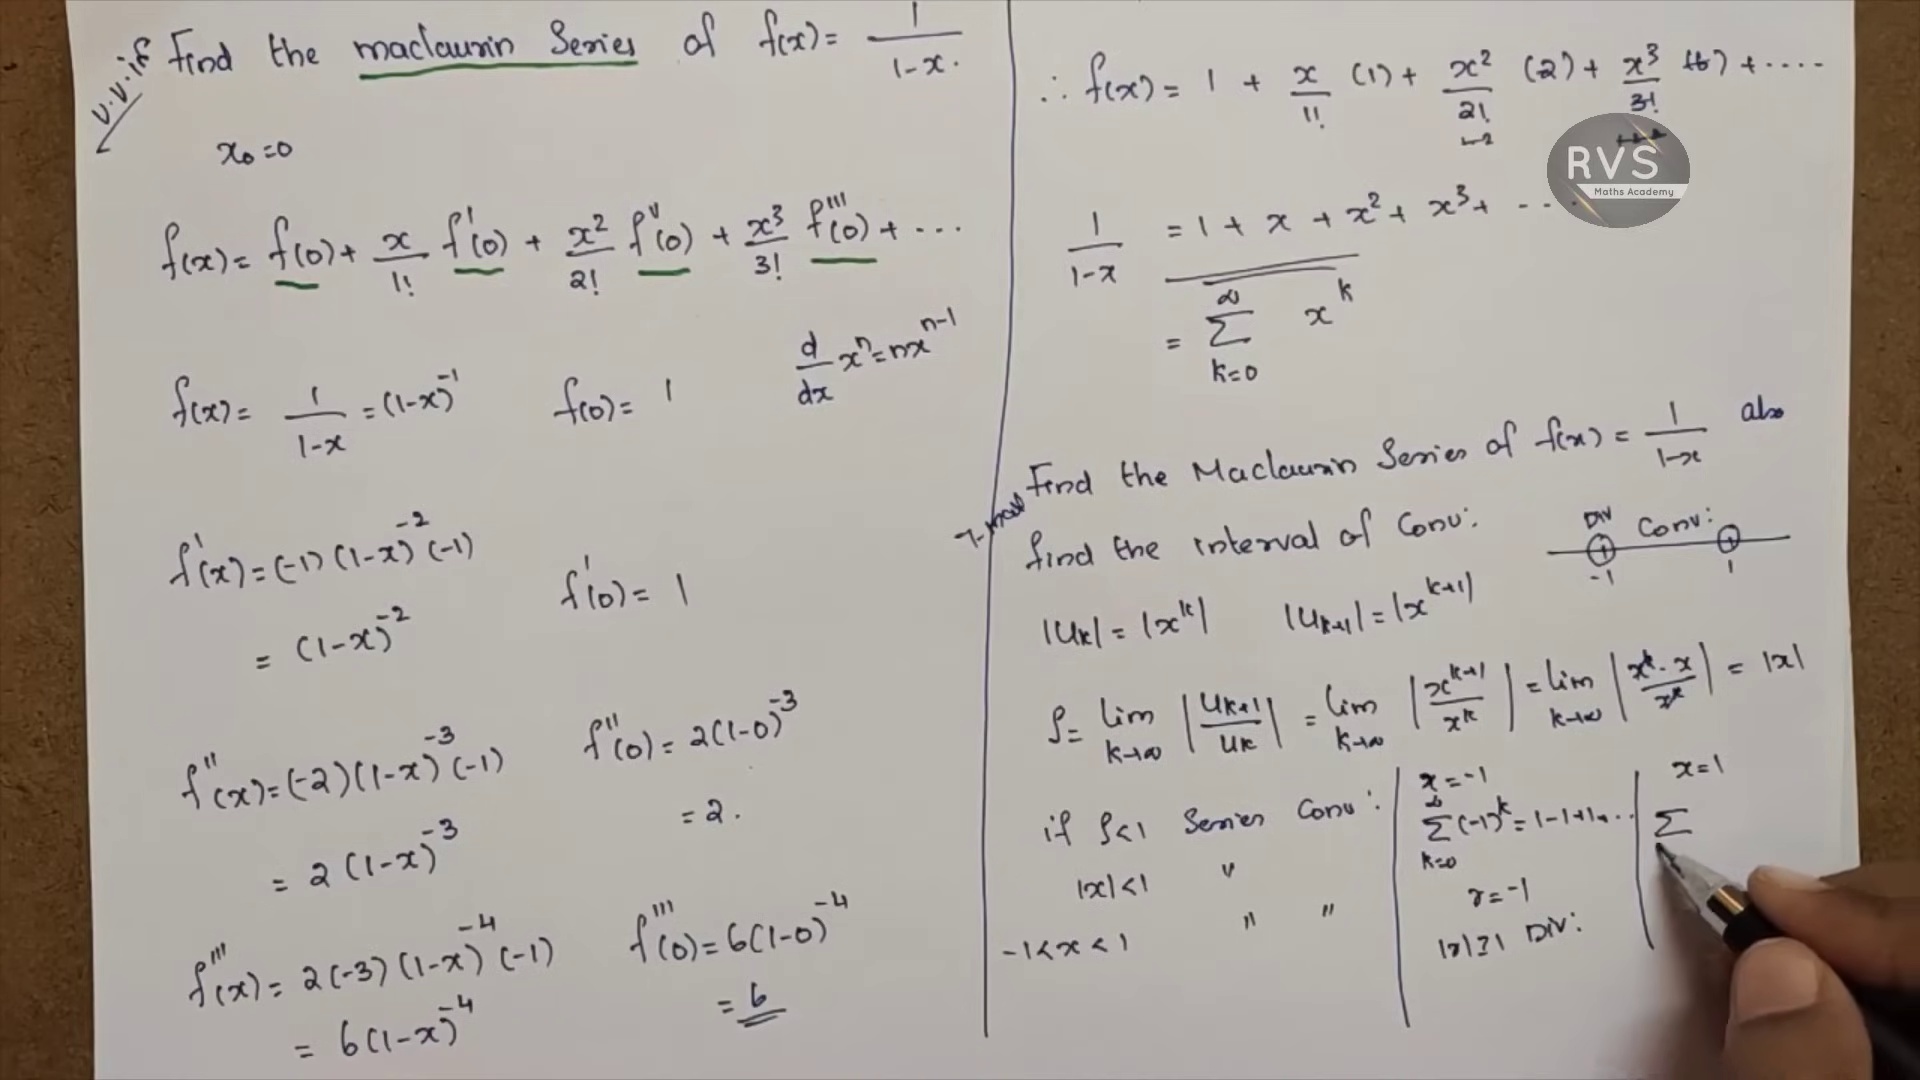 v.v.if Find the maclaurin Series of f(x) = 1/(1-x).
x₀ = 0
f(x) = f(0) + x/1! f'(0) + x²/2! f''(0) + x³/3! f'''(0) + ...
d/dx xⁿ = nxⁿ⁻¹
f(x) = 1/(1-x) = (1-x)⁻¹ f(0) = 1
f'(x) = (-1)(1-x)⁻²(-1) f'(0) = 1
= (1-x)⁻²
f''(x) = (-2)(1-x)⁻³(-1) f''(0) = 2(1-0)⁻³
= 2(1-x)⁻³ = 2.
f'''(x) = 2(-3)(1-x)⁻⁴(-1) f'''(0) = 6(1-0)⁻⁴
= 6(1-x)⁻⁴ = 6
∴ f(x) = 1 + x/1! (1) + x²/2! (2) + x³/3! (6) + ....
RVS
Maths Academy
1/(1-x) = 1 + x + x² + x³ + ...
= ∑ₖ₌₀^∞ xᵏ
Find the Maclaurin Series of f(x) = 1/(1-x) also
find the interval of Conv:
Div Conv:
-1 1
|Uₖ| = |xᵏ| |Uₖ₊₁| = |xᵏ⁺¹|
ρ = lim k→∞ |Uₖ₊₁/Uₖ| = lim k→∞ |xᵏ⁺¹/xᵏ| = lim k→∞ |xᵏ·x/xᵏ| = |x|
if ρ<1 Series Conv:
|x|<1 " 
-1<x<1 " "
x = -1
∑ₖ₌₀^∞ (-1)ᵏ = 1-1+1...
r = -1
|r|≥1 Div:
x = 1
∑